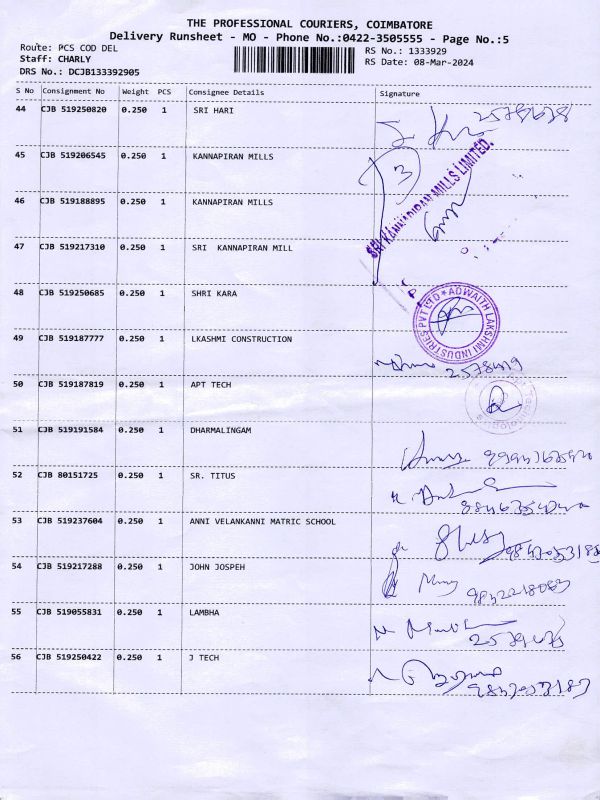 THE PROFESSIONAL COURIERS, COIMBATORE
Delivery Runsheet - MO - Phone No.:0422-3505555 - Page No.:5
Route: PCS COD DEL
RS No.: 1333929
Staff: CHARLY
RS Date: 08-Mar-2024
DRS No.: DCJB133392905
S No Consignment No Weight PCS Consignee Details Signature
44 CJB 519250820 0.250 1 SRI HARI
45 CJB 519206545 0.250 1 KANNAPIRAN MILLS
SRI KANNAPIRAN MILLS LIMITED.
46 CJB 519188895 0.250 1 KANNAPIRAN MILLS
47 CJB 519217310 0.250 1 SRI KANNAPIRAN MILL
48 CJB 519250685 0.250 1 SHRI KARA
ADWAITH LAKSHMI INDUSTRIES PVT LTD
49 CJB 519187777 0.250 1 LKASHMI CONSTRUCTION
50 CJB 519187819 0.250 1 APT TECH
51 CJB 519191584 0.250 1 DHARMALINGAM
52 CJB 80151725 0.250 1 SR. TITUS
53 CJB 519237604 0.250 1 ANNI VELANKANNI MATRIC SCHOOL
54 CJB 519217288 0.250 1 JOHN JOSPEH
55 CJB 519055831 0.250 1 LAMBHA
56 CJB 519250422 0.250 1 J TECH